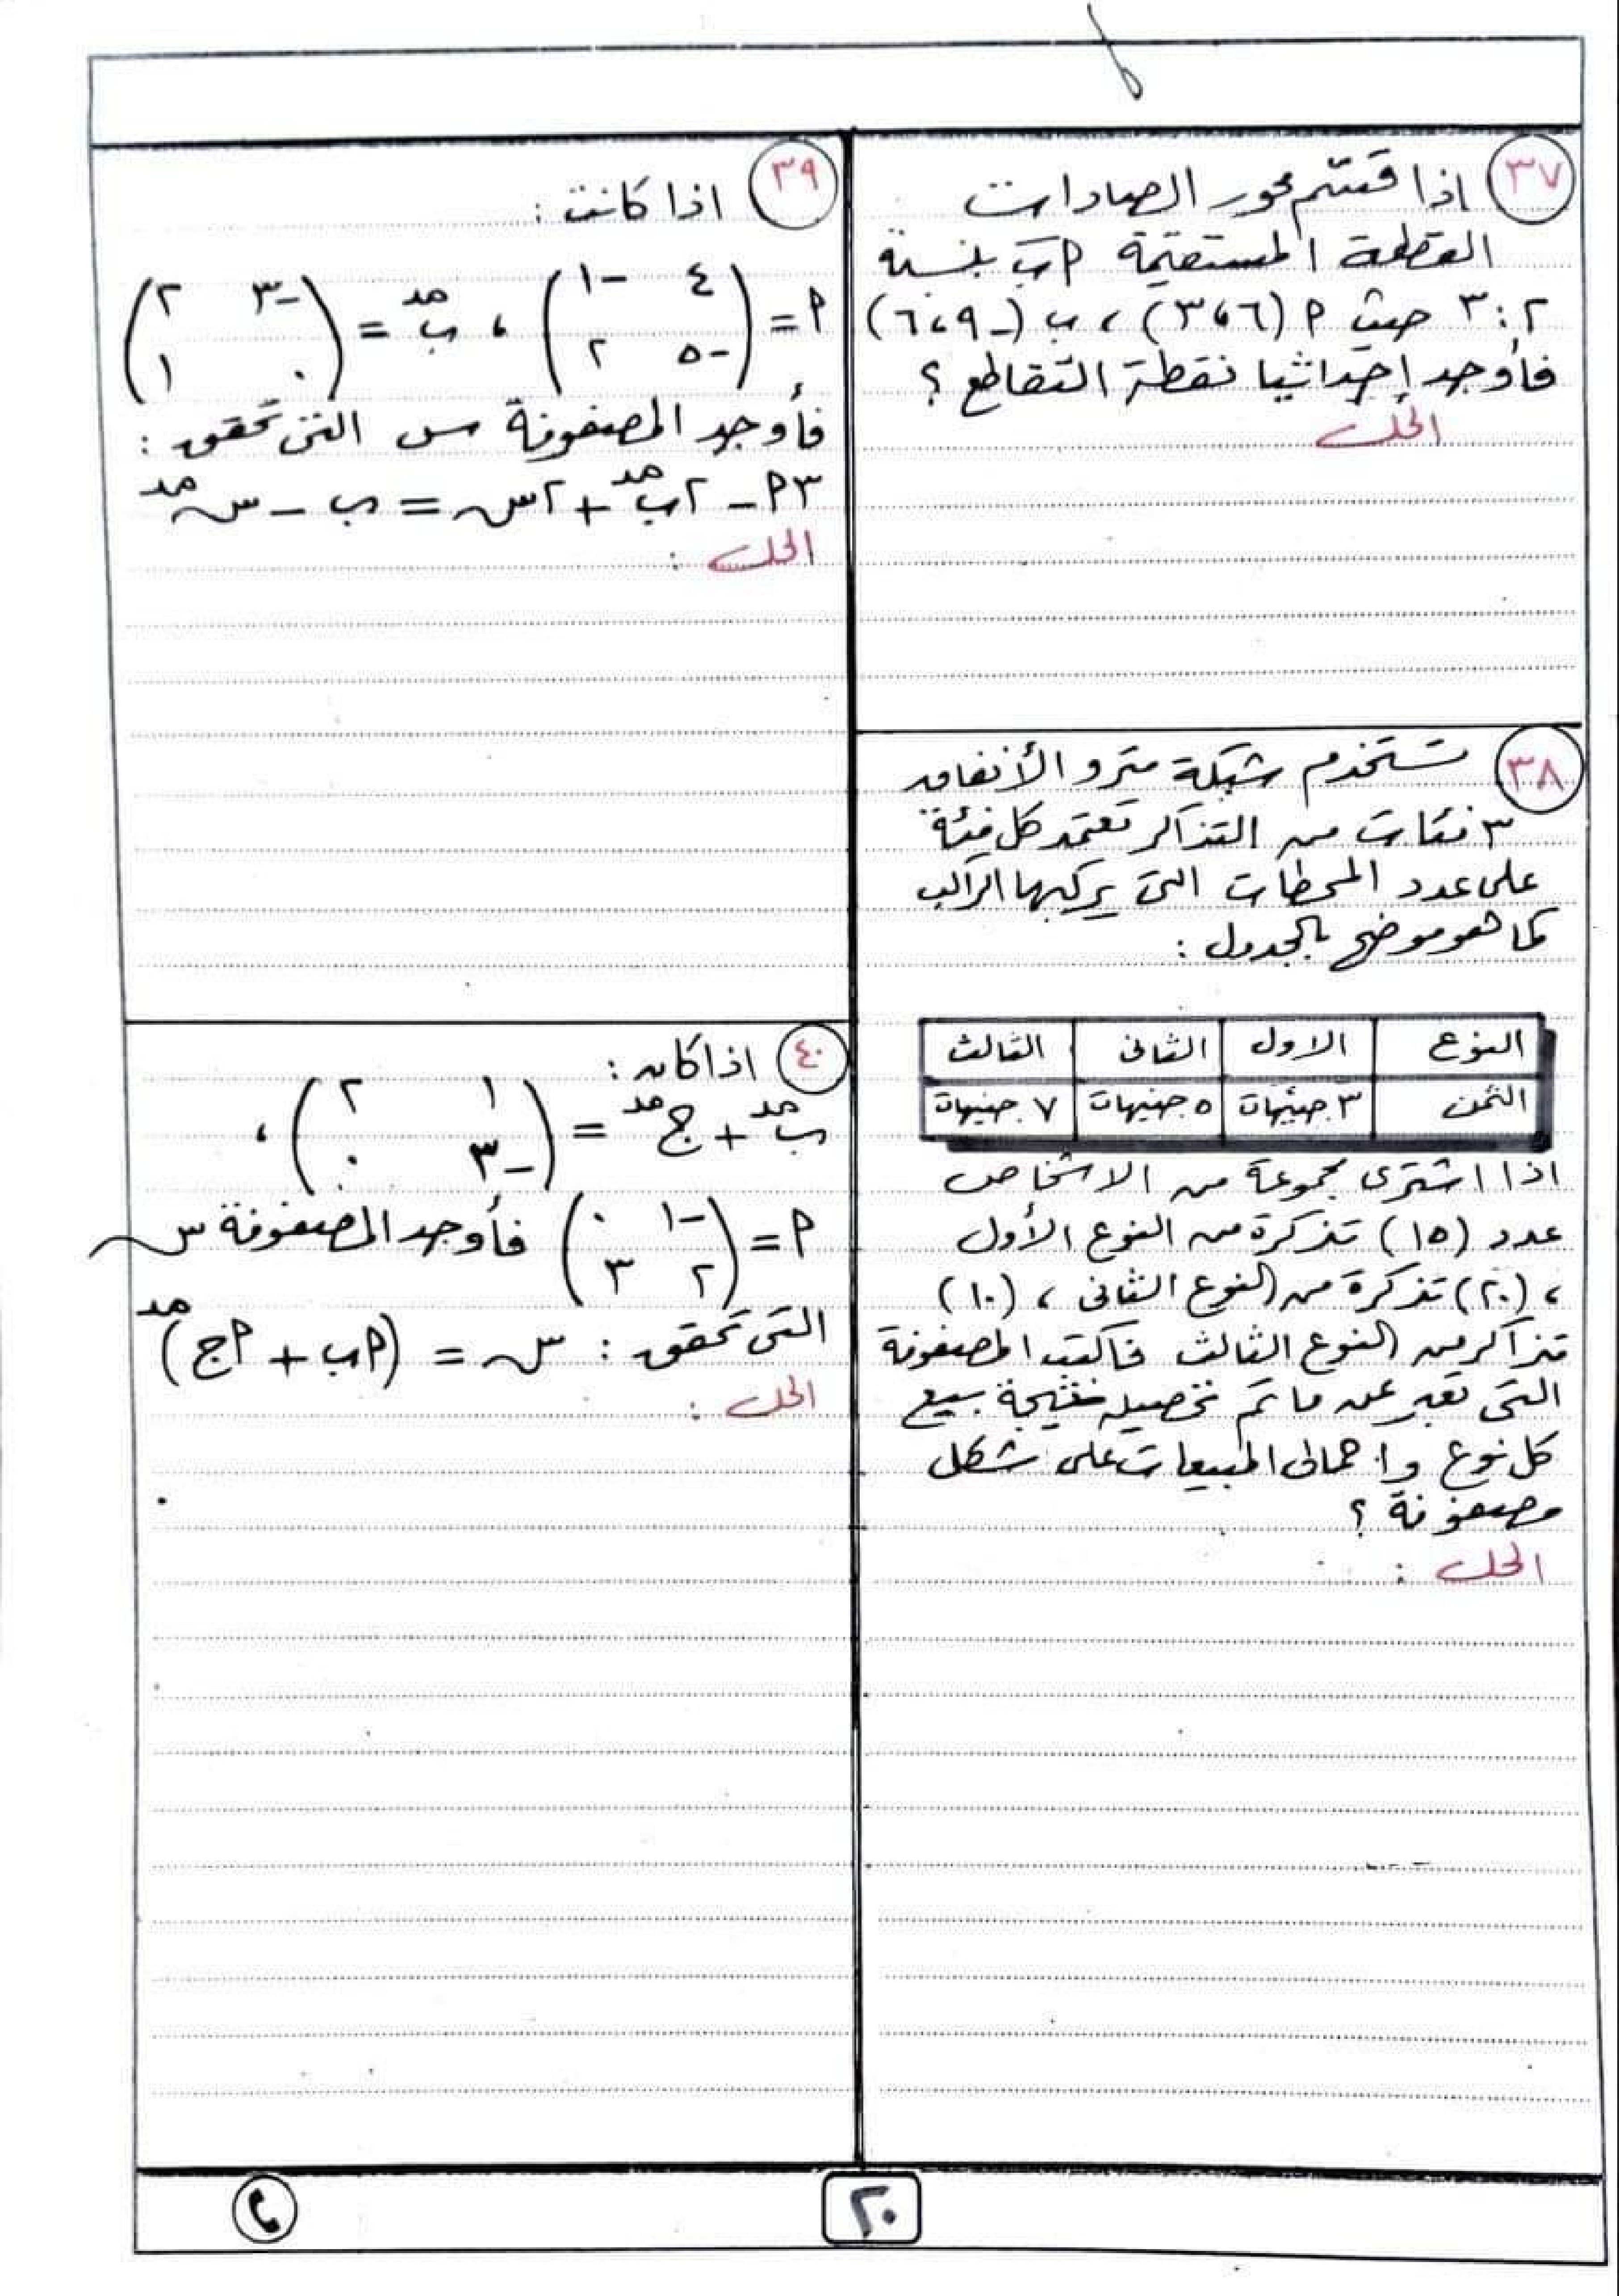 ٣٧ اذا قسّم محور الصادات
القطعة المستقيمة أب بنسبة
٢ : ٣ حيث أ (٦ ، ٣) ، ب (-٩ ، ٦)
فأوجد إحداثيا نقطة التقاطع ؟
الحل
٣٨ تستخدم شبكة مترو الأنفاق
٣ فئات من التذاكر تعتمد كل فئة
على عدد المحطات التى يركبها الراكب
كما هو موضح بالجدول :
النوع الاول الثانى الثالث
الثمن ٣ جنيهات ٥ جنيهات ٧ جنيهات
اذا اشترى مجموعة من الاشخاص
عدد (١٥) تذكرة من النوع الأول
، (٢٠) تذكرة من النوع الثانى ، (١٠)
تذاكر من النوع الثالث فاكتب المصفوفة
التى تعبر عن ما تم تحصيله نتيجة بيع
كل نوع واجمالى المبيعات على شكل
مصفوفة ؟
الحل :
٣٩ اذا كانت :
أ = (٤ -١
-٥ ٢) ، ب مد = (-٣ ٢
٠ ١)
فأوجد المصفوفة س التى تحقق :
٣أ - ٢ب مد + ٢س = ب - س مد
الحل :
٤٠ اذا كان :
ب مد + ج مد = (١ ٢
-٣ ٠) ،
أ = (-١ ٠
٢ ٣) فأوجد المصفوفة س
التى تحقق : س = (أب + أج) مد
الحل :
٢٠